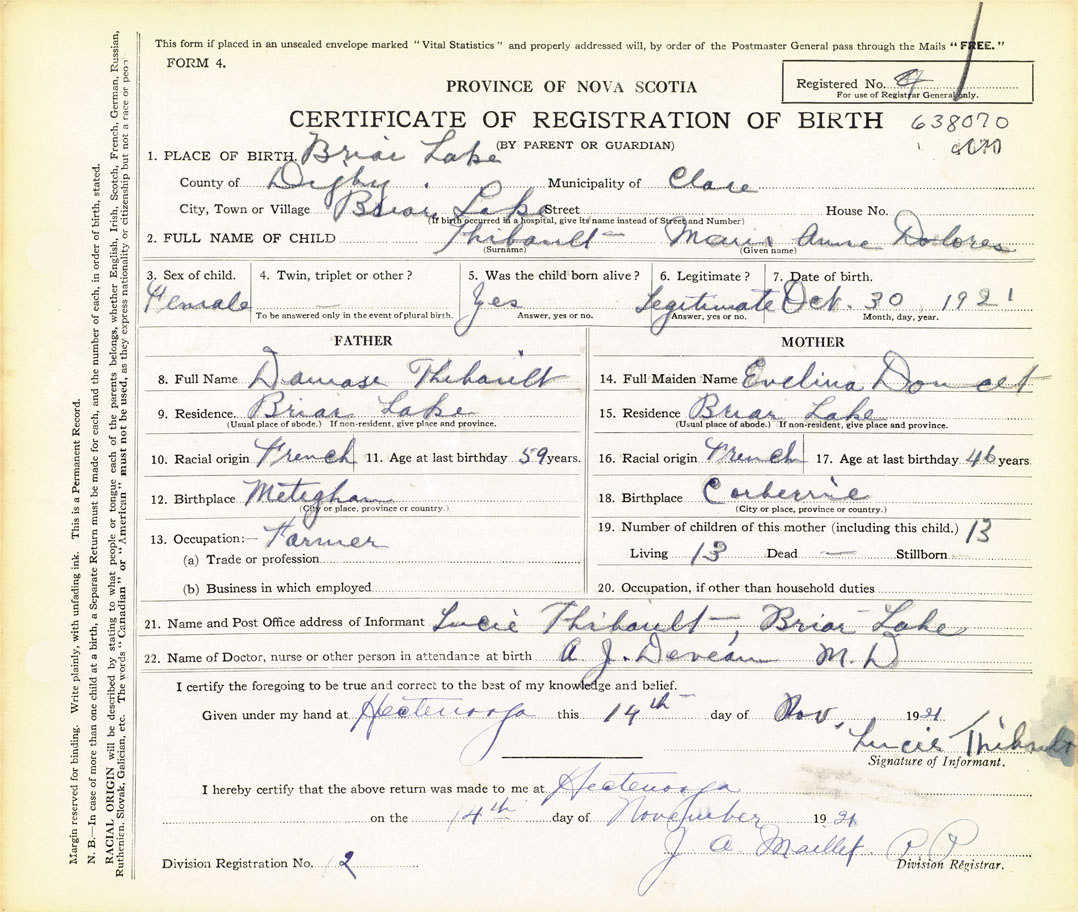 This form if placed in an unsealed envelope marked "Vital Statistics" and properly addressed will, by order of the Postmaster General pass through the Mails "FREE."
FORM 4.
Registered No. 4
For use of Registrar General only.
PROVINCE OF NOVA SCOTIA
CERTIFICATE OF REGISTRATION OF BIRTH 638070
(BY PARENT OR GUARDIAN)
1. PLACE OF BIRTH Briar Lake
County of Digby. Municipality of Clare
City, Town or Village Briar Lake Street House No.
(If birth occurred in a hospital, give its name instead of Street and Number)
2. FULL NAME OF CHILD Thibault Marie Anne Dolores
(Surname) (Given name)
3. Sex of child. 4. Twin, triplet or other? 5. Was the child born alive? 6. Legitimate? 7. Date of birth.
Female — Yes Legitimate Oct. 30, 1921
To be answered only in the event of plural birth. Answer, yes or no. Answer, yes or no. Month, day, year.
FATHER
8. Full Name Damase Thibault
9. Residence. Briar Lake
(Usual place of abode.) If non-resident, give place and province.
10. Racial origin French 11. Age at last birthday 59 years.
12. Birthplace Meteghan
(City or place, province or country.)
13. Occupation:— Farmer
(a) Trade or profession
(b) Business in which employed
MOTHER
14. Full Maiden Name Evelina Doucet
15. Residence Briar Lake
(Usual place of abode.) If non-resident, give place and province.
16. Racial origin French 17. Age at last birthday 46 years
18. Birthplace Corberrie
(City or place, province or country.)
19. Number of children of this mother (including this child.) 13
Living 13 Dead — Stillborn
20. Occupation, if other than household duties
21. Name and Post Office address of Informant Lucie Thibault, Briar Lake
22. Name of Doctor, nurse or other person in attendance at birth A. J. Deveau M. D
I certify the foregoing to be true and correct to the best of my knowledge and belief.
Given under my hand at Hectenooga this 14th day of Nov. 1921
Lucie Thibault
Signature of Informant.
I hereby certify that the above return was made to me at Hectenooga
on the 14th day of November 1921
J. A. Maillet P P
Division Registrar.
Division Registration No. 12
Margin reserved for binding. Write plainly, with unfading ink. This is a Permanent Record.
N. B.—In case of more than one child at a birth, a Separate Return must be made for each, and the number of each, in order of birth, stated.
RACIAL ORIGIN will be described by stating to what people or tongue each of the parents belongs, whether English, Irish, Scotch, French, German, Russian,
Ruthenian, Slovak, Galician, etc. The words "Canadian" or "American" must not be used, as they express nationality or citizenship but not a race or peo